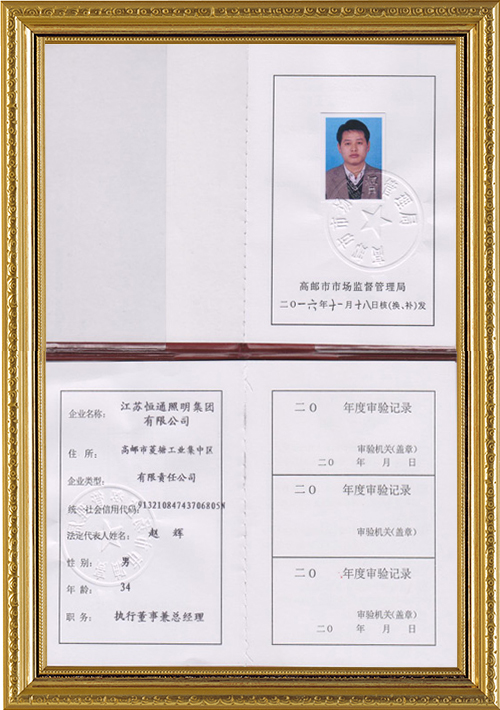 高邮市市场监督管理局
二〇一六年十一月十八日核(换、补)发
企业名称: 江苏恒通照明集团
有限公司
住 所: 高邮市菱塘工业集中区
企业类型: 有限责任公司
统一社会信用代码: 91321084743706805N
法定代表人姓名: 赵 辉
性 别: 男
年 龄: 34
职 务: 执行董事兼总经理
二〇 年度审验记录
审验机关(盖章)
二〇 年 月 日
二〇 年度审验记录
审验机关(盖章)
二〇 .年度审验记录
审验机关(盖章)
二〇 年 月 日